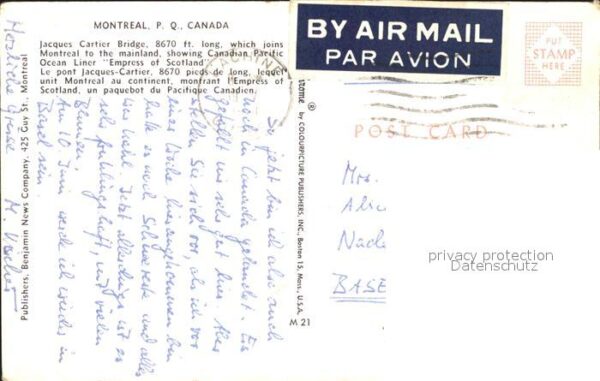 MONTREAL, P. Q., CANADA
Jacques Cartier Bridge, 8670 ft. long, which joins
Montreal to the mainland, showing Canadian Pacific
Ocean Liner "Empress of Scotland".
Le pont Jacques-Cartier, 8670 pieds de long, lequel
unit Montreal au continent, montrant l'Empress of
Scotland, un paquebot du Pacifique Canadien.
BY AIR MAIL
PAR AVION
PUT
STAMP
HERE
LACHINE
POST CARD
So jetzt bin ich also auch
noch in Canada gelandet. Es
gefällt mir sehr gut hier. Aber
stellen Sie sich vor, als ich vor
einer Woche hier angekommen bin
hatte es noch Schneereste und alles
war kahl. Jetzt allerdings ist es
sehr frühlingshaft, mit vielen
Blumen.
Am 10. Juni werde ich wieder in
Basel sein.
Herzliche Grüsse
M.
Publishers, Benjamin News Company, 425 Guy St., Montreal
by COLOURPICTURE PUBLISHERS, INC., Boston 15, Mass., U.S.A.
M 21
Mrs.
Alic
BASE
privacy protection
Datenschutz